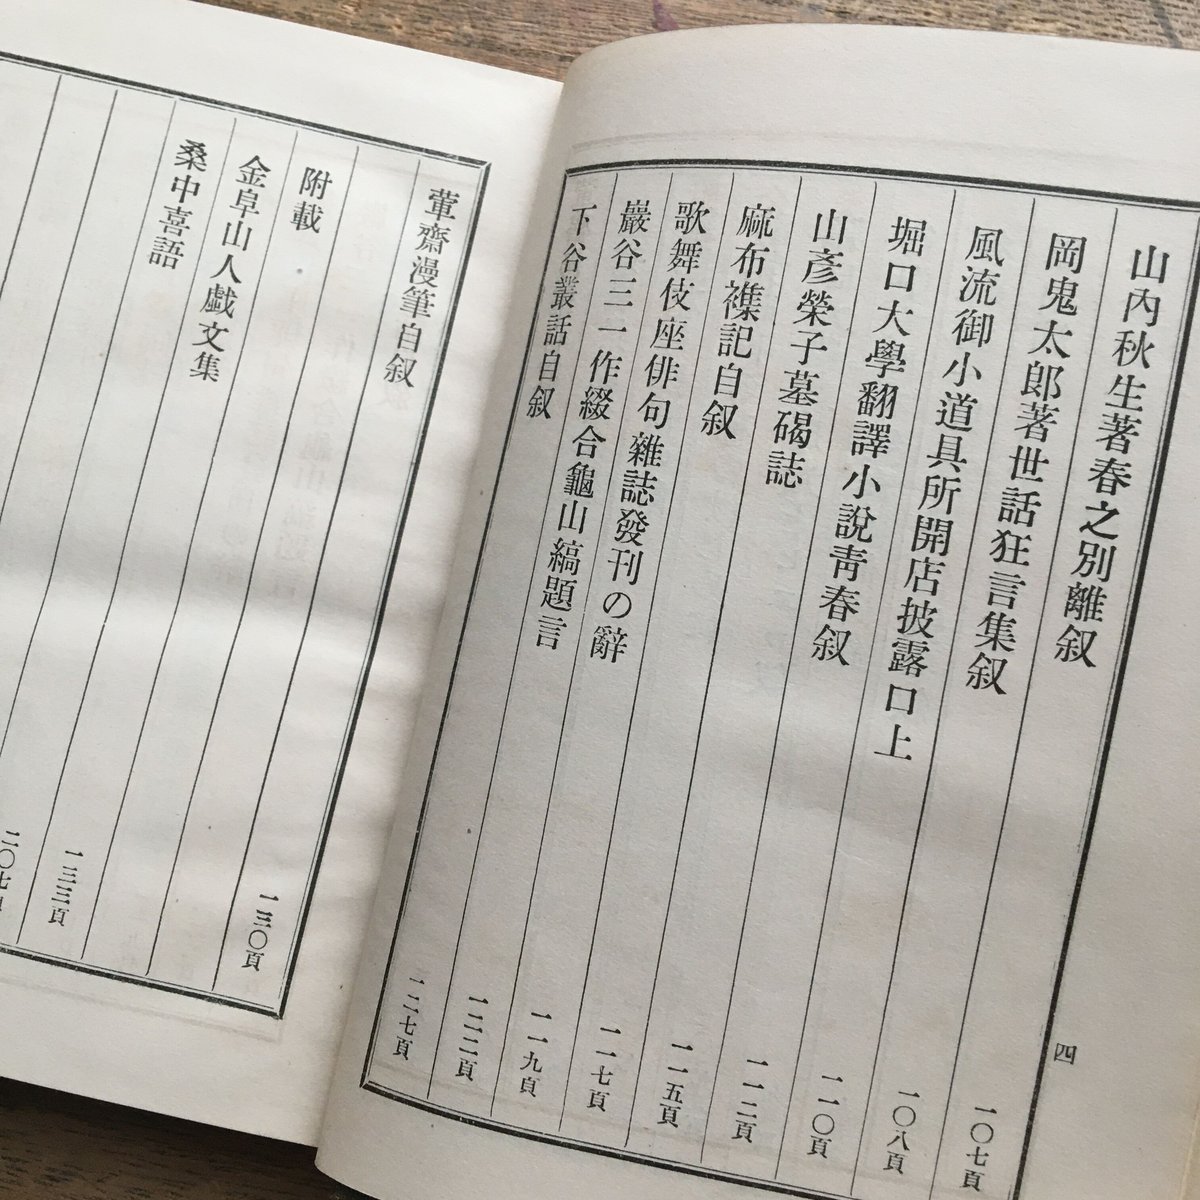 四
山內秋生著春之別離叙 一〇七頁
岡鬼太郎著世話狂言集叙 一〇八頁
風流御小道具所開店披露口上 一一〇頁
堀口大學翻譯小說靑春叙 一一二頁
山彥榮子墓碣誌 一一五頁
麻布襍記自叙 一一七頁
歌舞伎座俳句雜誌發刊の辭 一一九頁
巖谷三一作綴合龜山縞題言 一二二頁
下谷叢話自叙 一二七頁
葷齋漫筆自叙 一三〇頁
附載
金阜山人戯文集 一三三頁
桑中喜語 二〇七頁